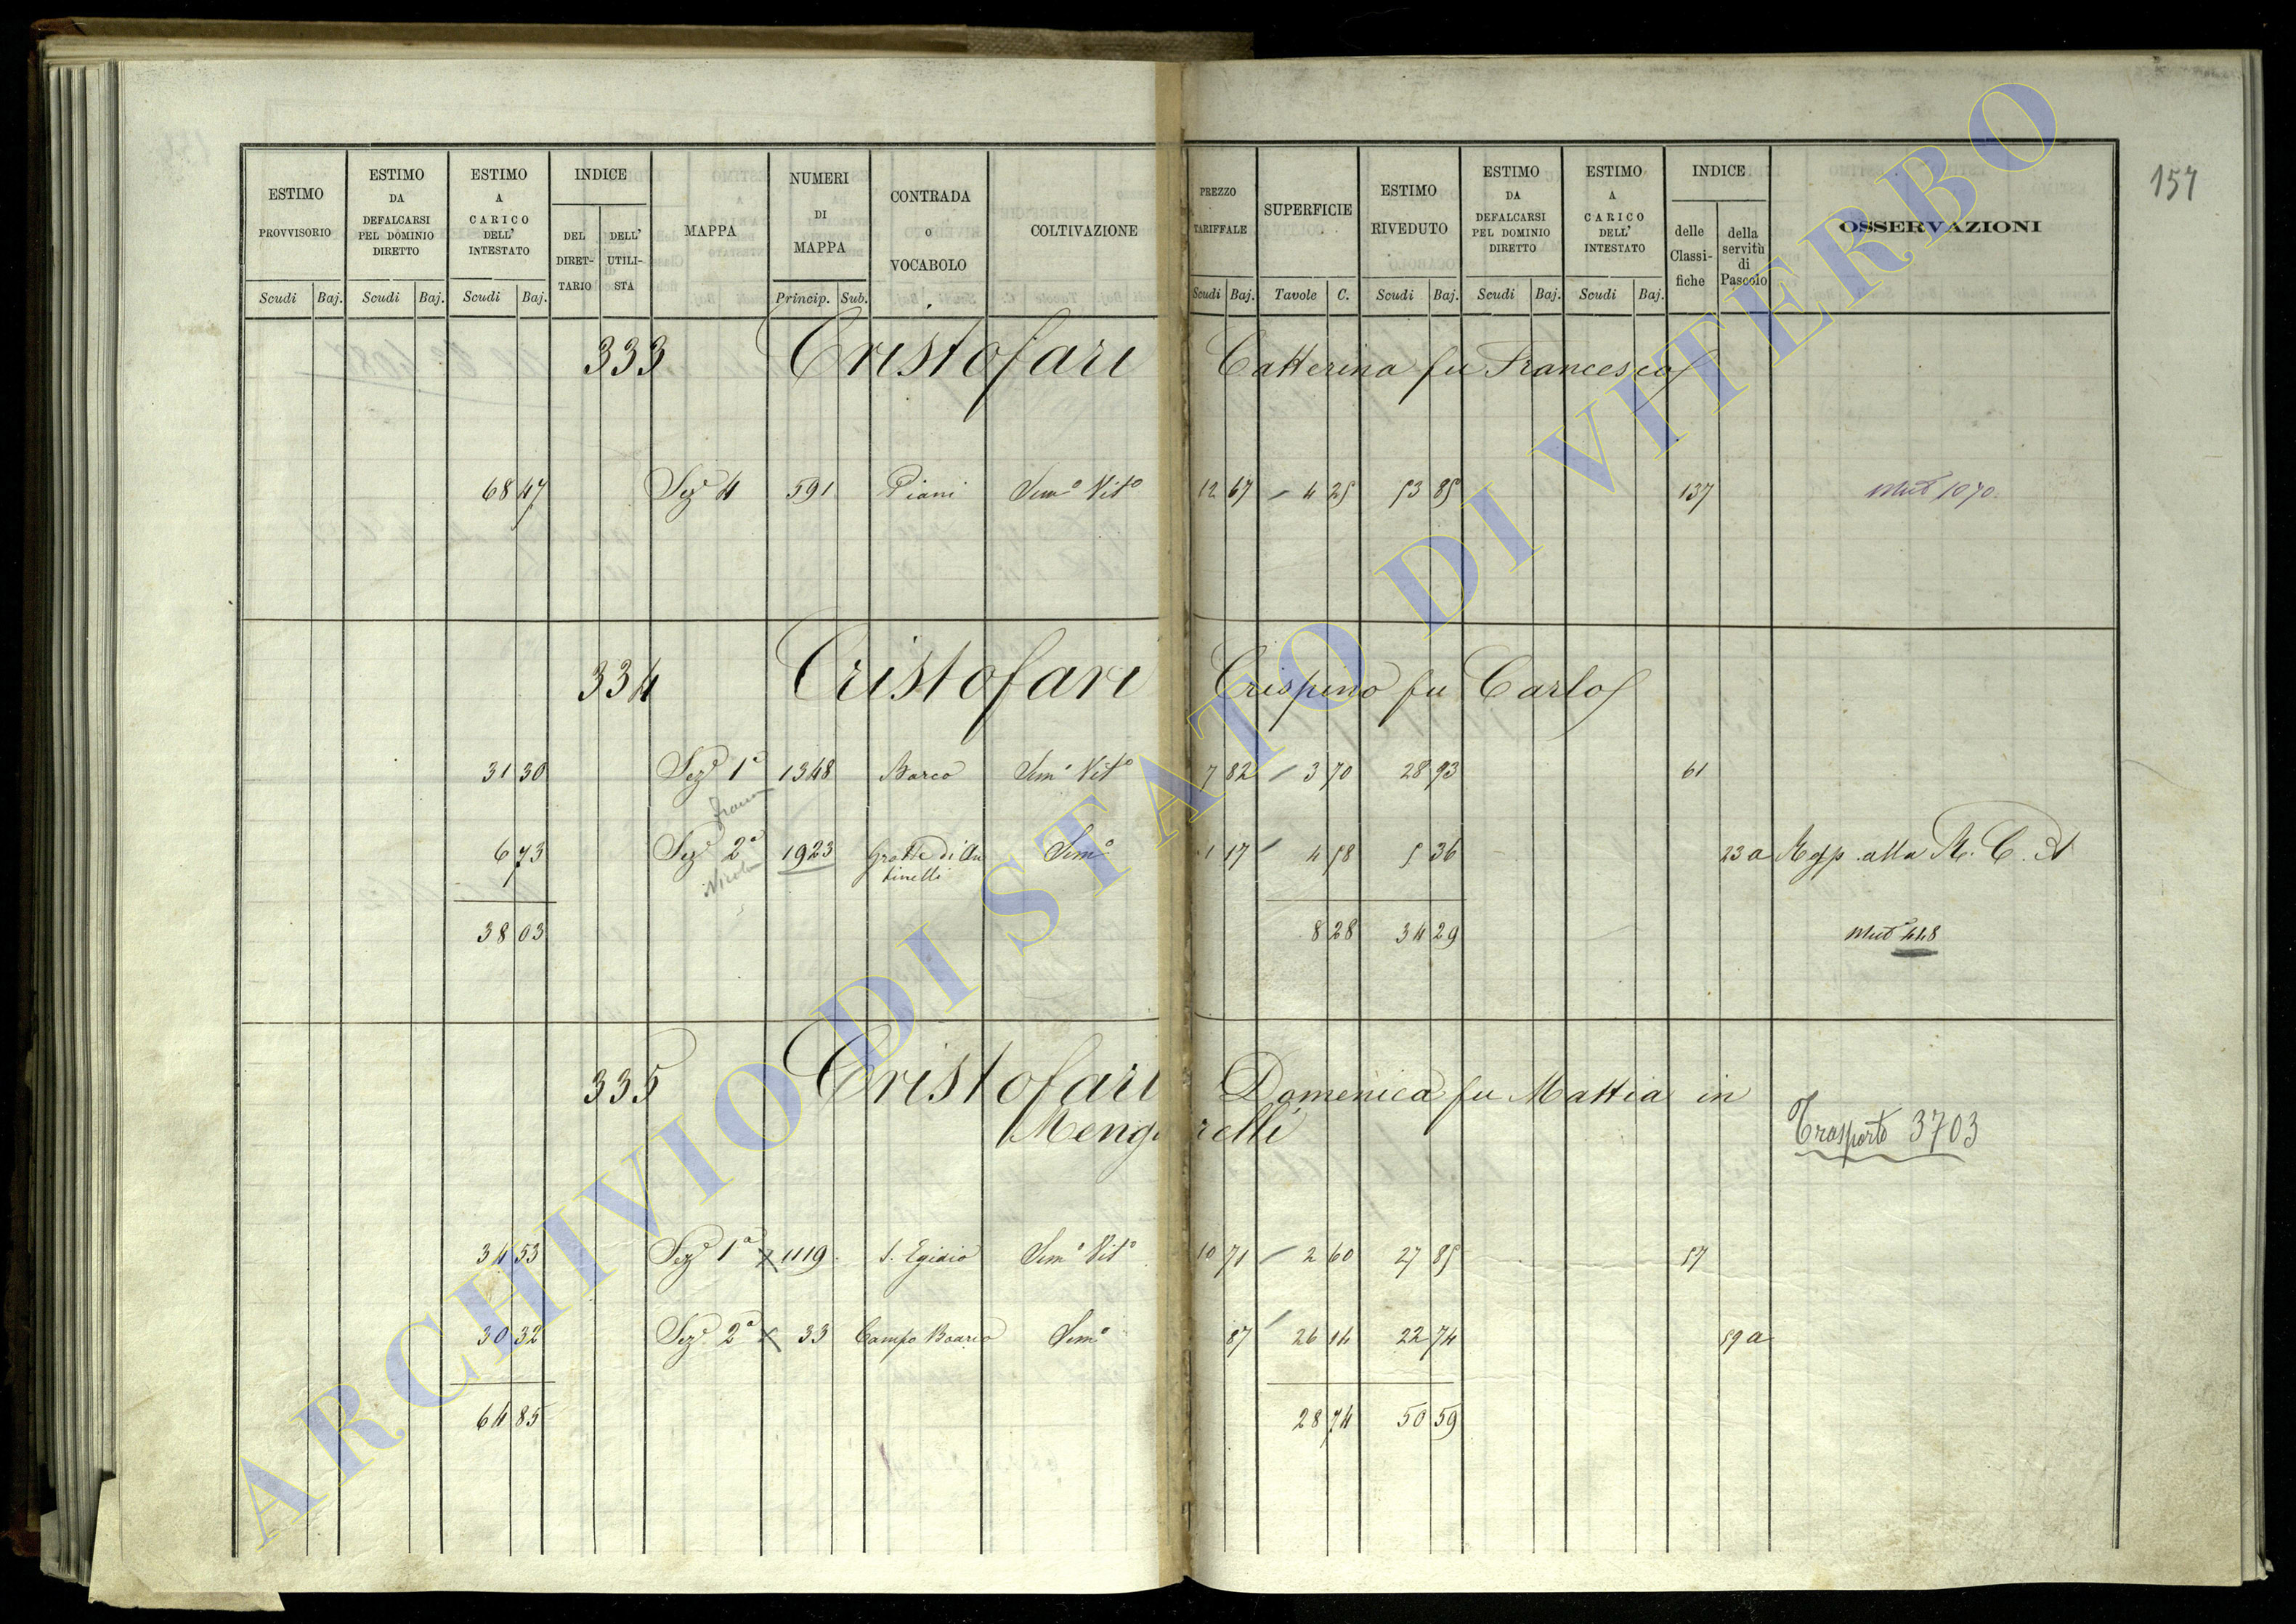 157
ESTIMO PROVVISORIO Scudi Baj.
ESTIMO DA DEFALCARSI PEL DOMINIO DIRETTO Scudi Baj.
ESTIMO A CARICO DELL' INTESTATO Scudi Baj.
INDICE DEL DIRET-TARIO DELL' UTILI-STA
MAPPA
NUMERI DI MAPPA Princip. Sub.
CONTRADA o VOCABOLO
COLTIVAZIONE
PREZZO TARIFFALE Scudi Baj.
SUPERFICIE Tavole C.
ESTIMO RIVEDUTO Scudi Baj.
ESTIMO DA DEFALCARSI PEL DOMINIO DIRETTO Scudi Baj.
ESTIMO A CARICO DELL' INTESTATO Scudi Baj.
INDICE delle Classi-fiche della servitù di Pascolo
OSSERVAZIONI
333 Cristofari Catterina fu Francesco
68 47 Seze 4 591 Piani Semo Vito 12 67 4 25 53 85 137 Mut 1070
334 Cristofari Crispino fu Carlo
31 30 Seze 1a 1348 Barco Semo Vito 7 82 3 70 28 93 61
6 73 Seze 2a 1923 Grotte di An Semo 1 17 4 58 5 36 23 a Resp. alla R. C. A
tinelli
38 03 8 28 34 29 Mut 448
335 Cristofari Domenica fu Mattia in
Mengarelli
Trasporto 3703
34 53 Seze 1a x 1119 S. Egidio Semo Vito 10 71 2 60 27 85 57
30 32 Seze 2a x 33 Campo Boario Semo 87 26 14 22 74 59 a
64 85 28 74 50 59
ARCHIVIO DI STATO DI VITERBO